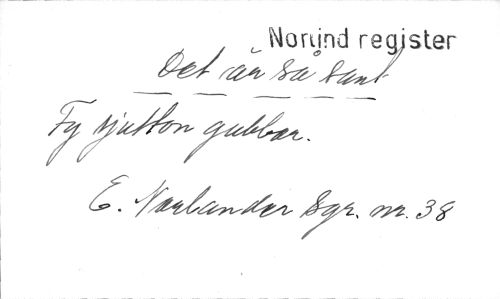 Norlind register
Det är så sant
Fy sjutton gubbar.
E. Norlander Sgr. nr. 38